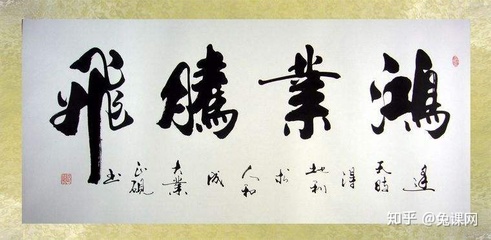 鴻業騰飛
逢天時得地利人和成大業
書
知乎 @兔课网